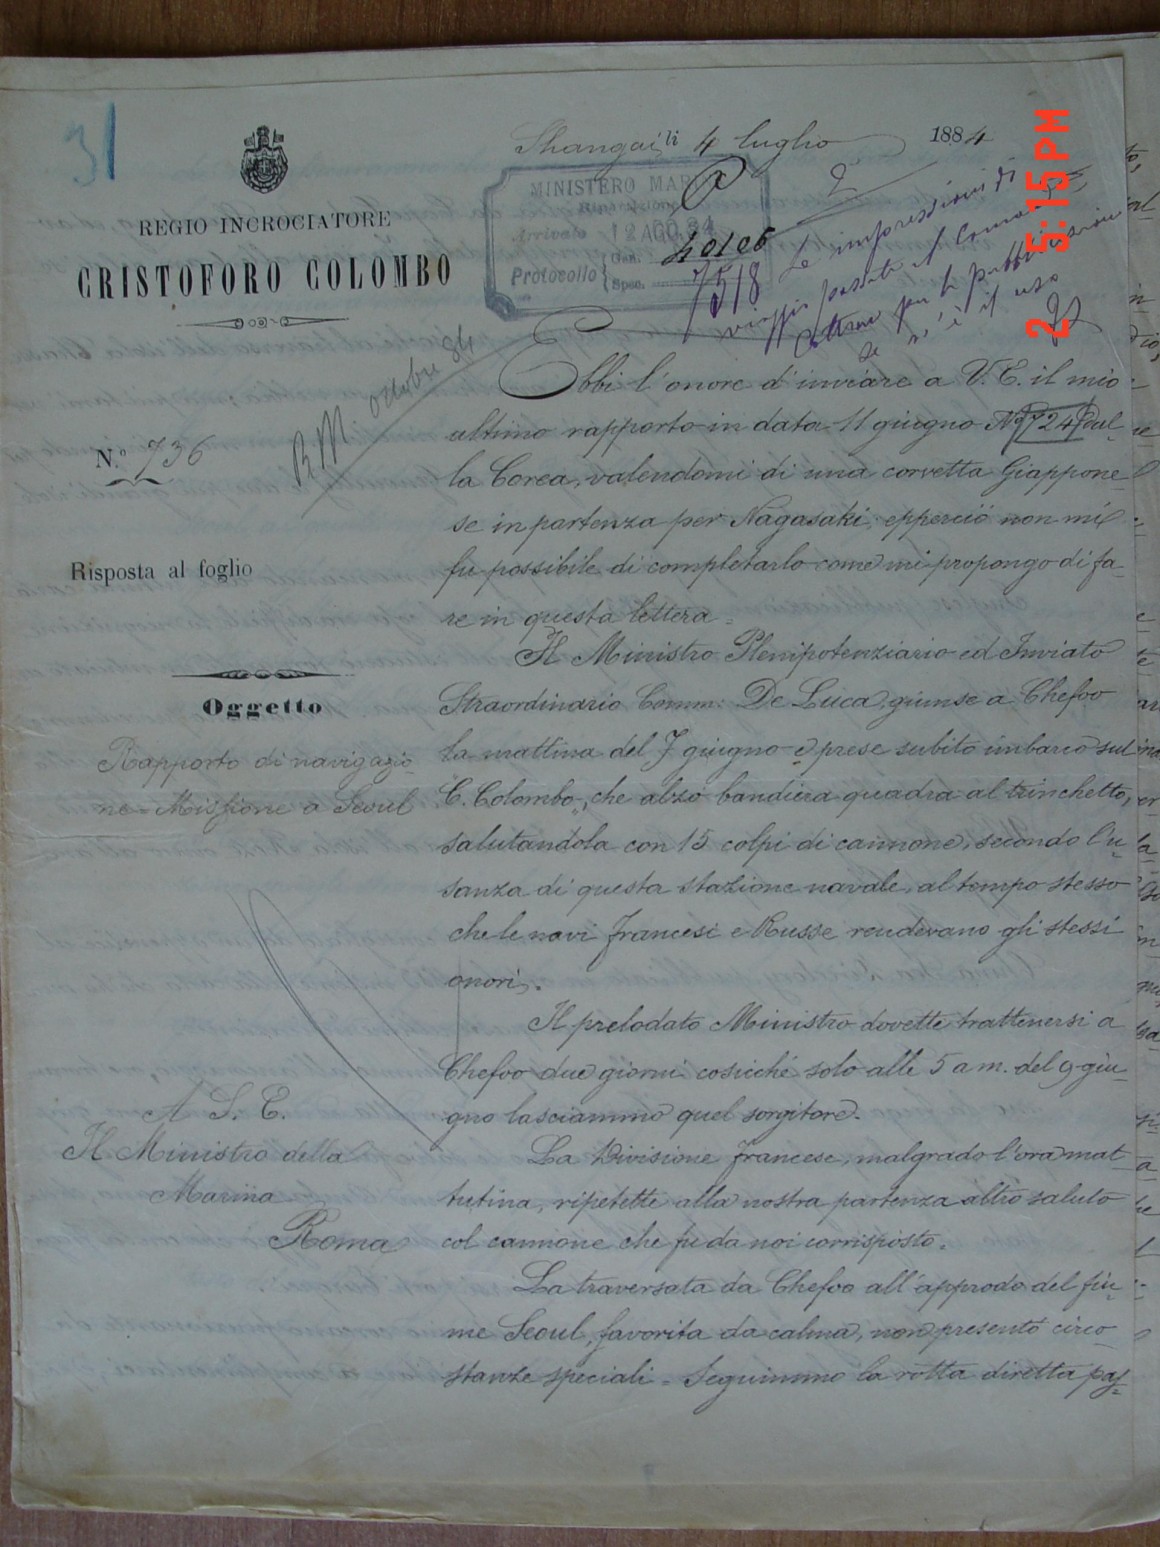 31
Shangai li 4 luglio 1884
REGIO INCROCIATORE
CRISTOFORO COLOMBO
MINISTERO MARINA
Arrivato 12 AGO.84
Protocollo { Gen. 40106
Spec. 7518
Le impressioni di
viaggio
per la pubblicazione
se n'è il caso
B.M. ottobre 84
N.º 736
Risposta al foglio
Oggetto
Rapporto di navigazio-
ne = Missione a Seoul
A S. E.
Il Ministro della
Marina
Roma
Ebbi l'onore d'inviare a V. E. il mio
ultimo rapporto in data 11 giugno Nº 724 dal-
la Corea, valendomi di una corvetta Giappone-
se in partenza per Nagasaki, epperciò non mi
fu possibile di completarlo come mi propongo di fa-
re in questa lettera =
Il Ministro Plenipotenziario ed Inviato
Straordinario Comm: De Luca, giunse a Chefoo
la mattina del 7 giugno e prese subito imbarco sul
C. Colombo, che alzò bandiera quadra al trinchetto,
salutandola con 15 colpi di cannone, secondo l'u-
sanza di questa stazione navale, al tempo stesso
che le navi francesi e Russe rendevano gli stessi
onori.
Il prelodato Ministro dovette trattenersi a
Chefoo due giorni cosicché solo alle 5 a m. del 9 giu-
gno lasciammo quel sorgitore.
La Divisione francese, malgrado l'ora mat-
tutina, ripetette alla nostra partenza altro saluto
col cannone che fu da noi corrisposto.
La traversata da Chefoo all'approdo del fiu-
me Seoul, favorita da calma, non presentò circo-
stanze speciali = Seguimmo la rotta diretta pas-
2 5:15PM